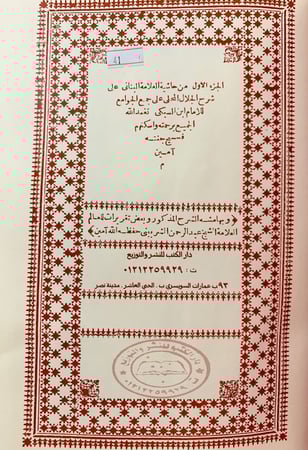 41
الجزء الاول من حاشية العلامة البناني على
شرح الجلال المحلى على جمع الجوامع
للامام ابن السبكى تغمد الله
الجميع برحمته واسكنهم
فسيح جنته
آمين
م
﴿ وبهامشه الشرح المذكور وبعض تقريرات للعالم
العلامة الشيخ عبد الرحمن الشربينى حفظه الله آمين ﴾
دار الكتب للنشر والتوزيع
ت : ٠١٢١٢٢٥٩٩٢٩
٩٣ ب عمارات السويسرى ب. الحى العاشر. مدينة نصر